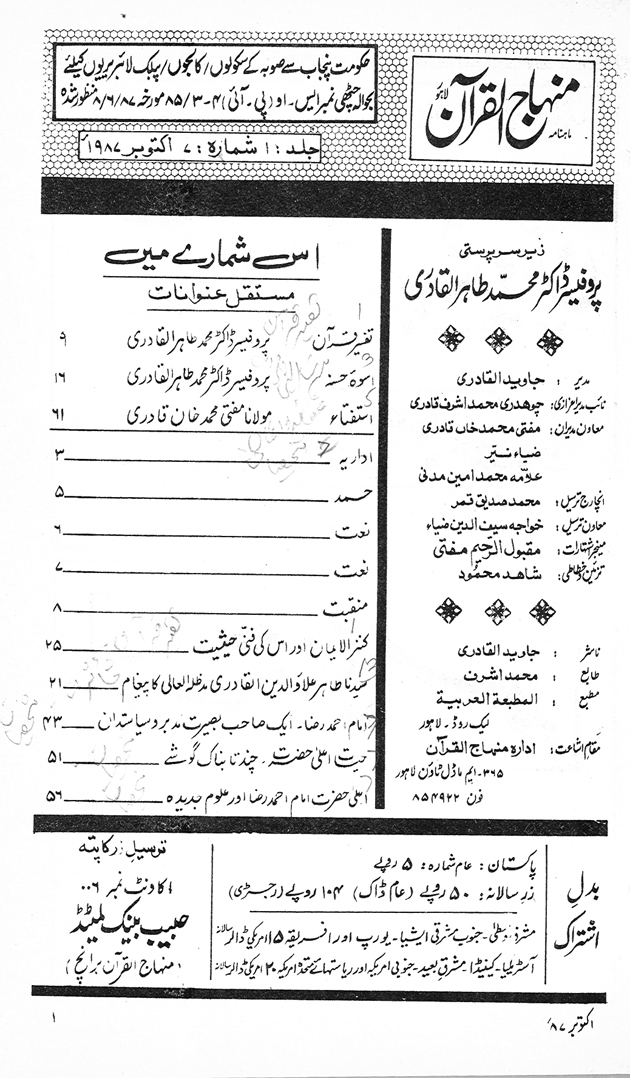 ماہنامہ منہاج القرآن لاہور
حکومت پنجاب سے صوبہ کے سکولوں/کالجوں/پبلک لائبریریوں کیلئے
بحوالہ چٹھی نمبر ایس۔او (پی۔آئی) ۴-۳/۸۵ مورخہ ۸/۶/۸۷ منظور شدہ
جلد: ۱ شمارہ: ۷ اکتوبر ۱۹۸۷ء
زیر سرپرستی
پروفیسر ڈاکٹر محمد طاہر القادری
مدیر: جاوید القادری
نائب مدیر اعزازی: چوھدری محمد اشرف قادری
معاون مدیران: مفتی محمد خاں قادری
ضیاء نیّر
علامہ محمد امین مدنی
انچارج ترسیل: محمد صدیق قمر
معاون ترسیل: خواجہ سیف الدین ضیاء
مینجر اشتہارات: مقبول الرحیم مفتی
تزئین و خطاطی: شاھد محمود
ناشر: جاوید القادری
طابع: محمد اشرف
مطبع: المطبعة العربیة
لیک روڈ۔ لاہور
مقام اشاعت: ادارہ منہاج القرآن
۳۶۵۔ ایم ماڈل ٹاؤن لاہور
فون ۸۵۴۹۲۲
اس شمارے میں
مستقل عنوانات
تفسیر قرآن پروفیسر ڈاکٹر محمد طاہر القادری ۹
اسوۂ حسنہ پروفیسر ڈاکٹر محمد طاہر القادری ۱۶
استفتاء مولانا مفتی محمد خان قادری ۶۱
اداریہ ۳
حمد ۵
نعت ۶
نعت ۷
منقبت ۸
کنز الایمان اور اس کی فنّی حیثیت ۲۵
سیدنا طاہر علاؤ الدین القادری مدظلہ العالی کا پیغام ۲۱
امام احمد رضا۔ ایک صاحب بصیرت مدبر و سیاستدان ۴۳
حیات اعلیٰ حضرت۔ چند تابناک گوشے ۵۱
اعلیٰ حضرت امام احمد رضا اور علوم جدیدہ ۵۶
بدلِ اشتراک
پاکستان: عام شمارہ: ۵ روپے
زرِ سالانہ: ۵۰ روپے (عام ڈاک) ۱۰۴ روپے (رجسٹری)
مشرق وسطیٰ۔ جنوب مشرقی ایشیا۔ یورپ اور افریقہ ۱۵ امریکی ڈالر سالانہ
آسٹریلیا۔ کینیڈا۔ مشرق بعید۔ جنوبی امریکہ اور ریاستہائے متحدہ امریکہ ۲۰ امریکی ڈالر سالانہ
ترسیل زر کا پتہ
اکاؤنٹ نمبر ۰۰۶
حبیب بینک لمیٹڈ
(منہاج القرآن برانچ)
اکتوبر ۸۷ء
۱